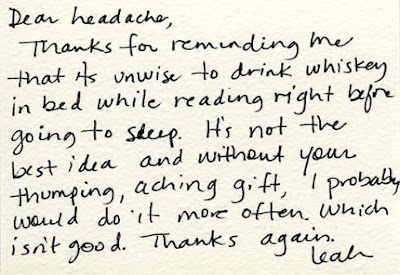 Dear headache,
Thanks for reminding me
that its unwise to drink whiskey
in bed while reading right before
going to sleep. It's not the
best idea and without your
thumping, aching gift, I probably
would do it more often. Which
isn't good. Thanks again.
Leah